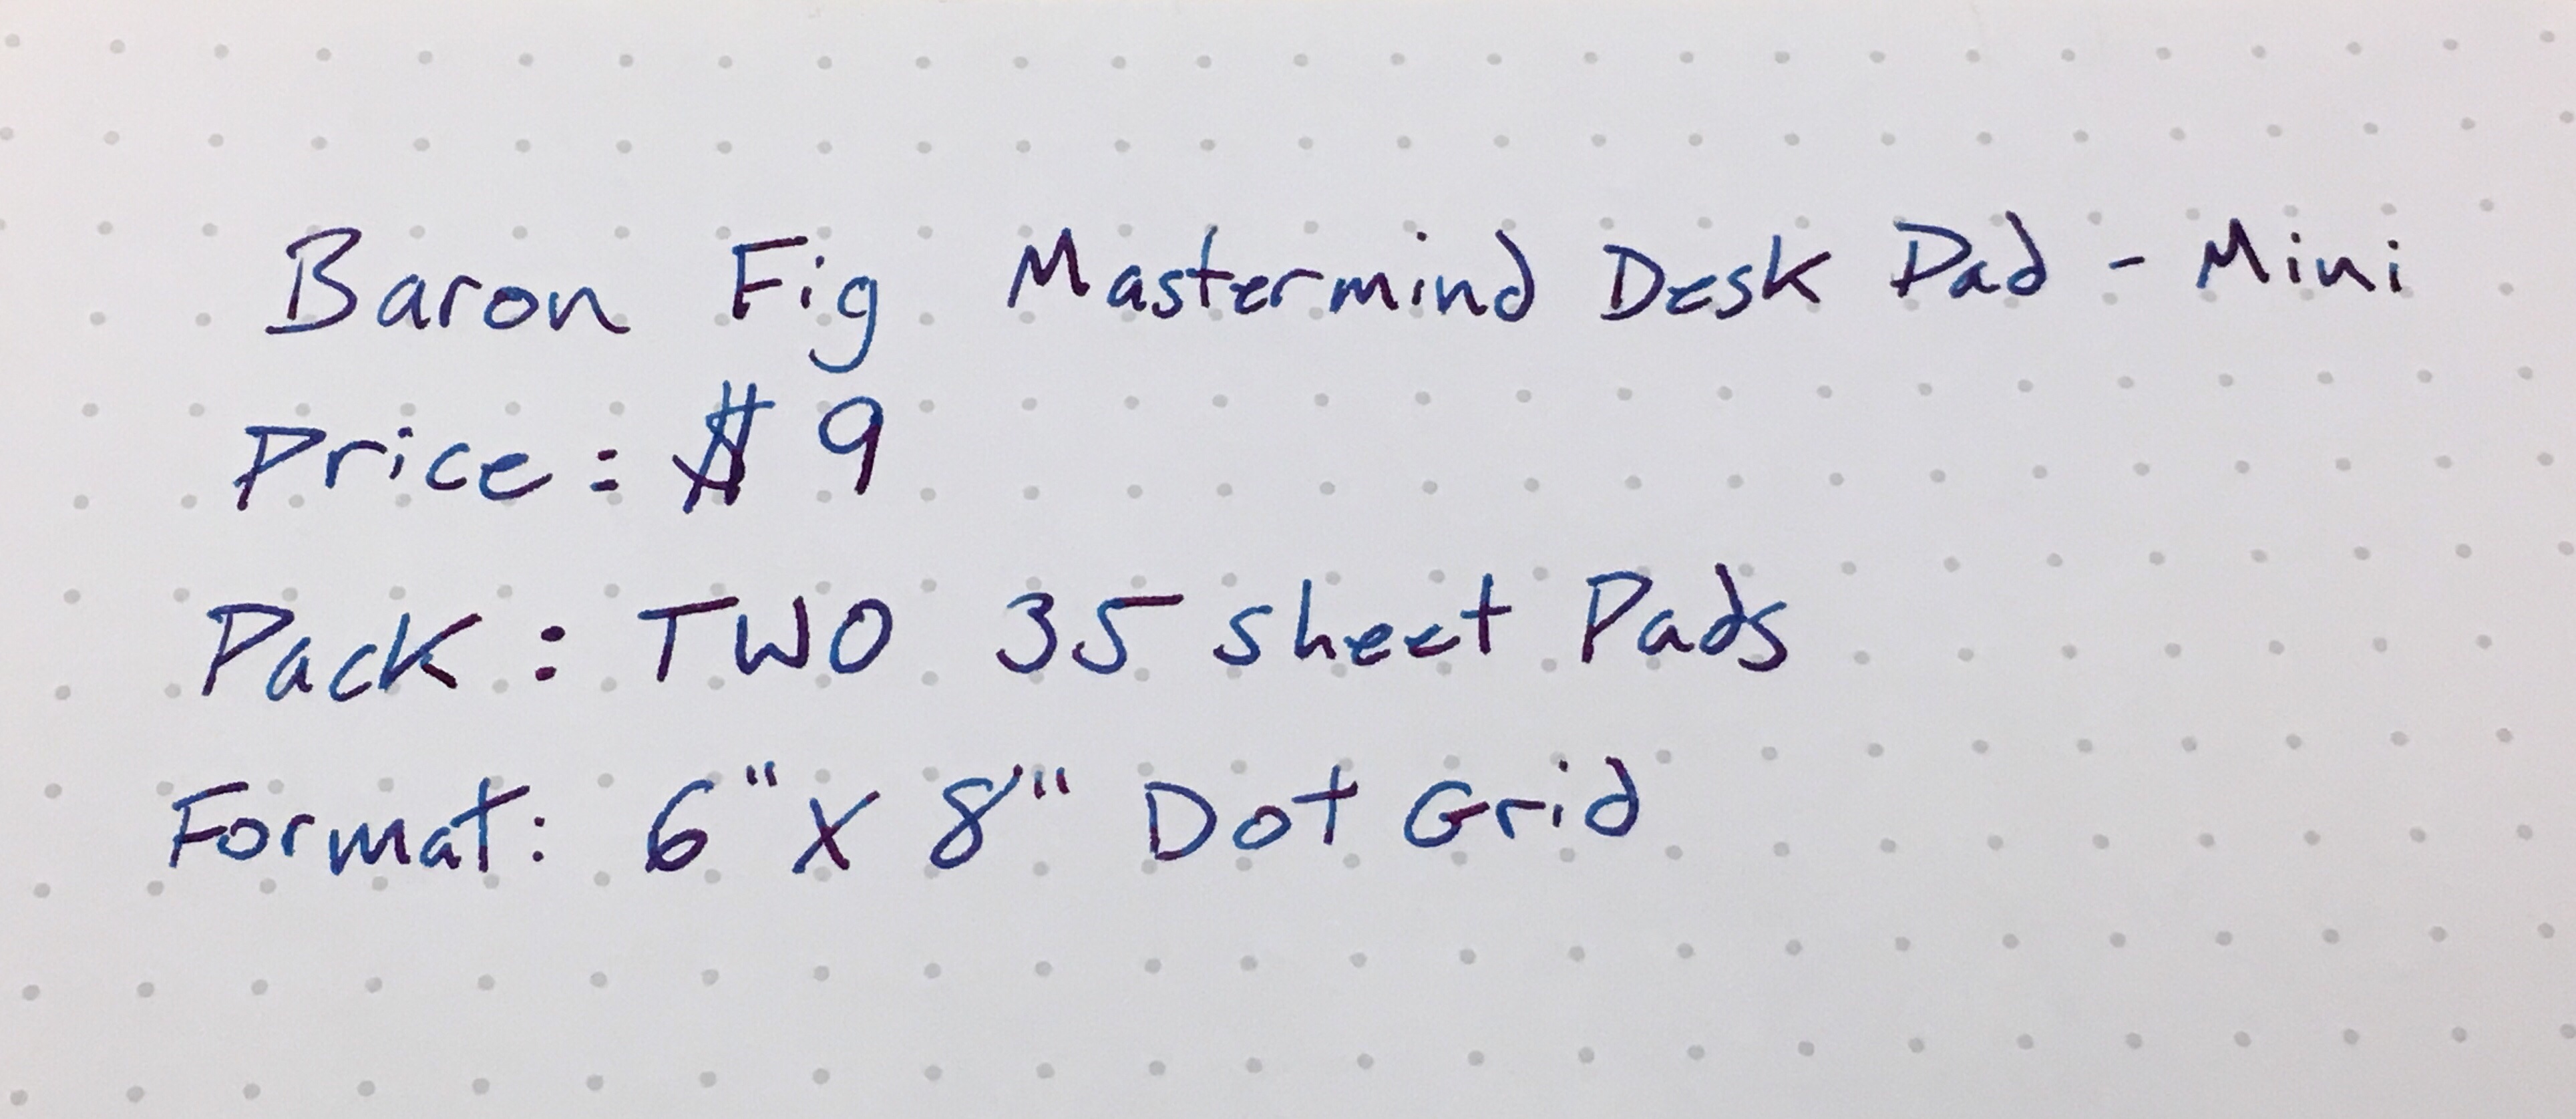 Baron Fig Mastermind Desk Pad - Mini
Price: $9
Pack: TWO 35 sheet Pads
Format: 6" x 8" Dot Grid